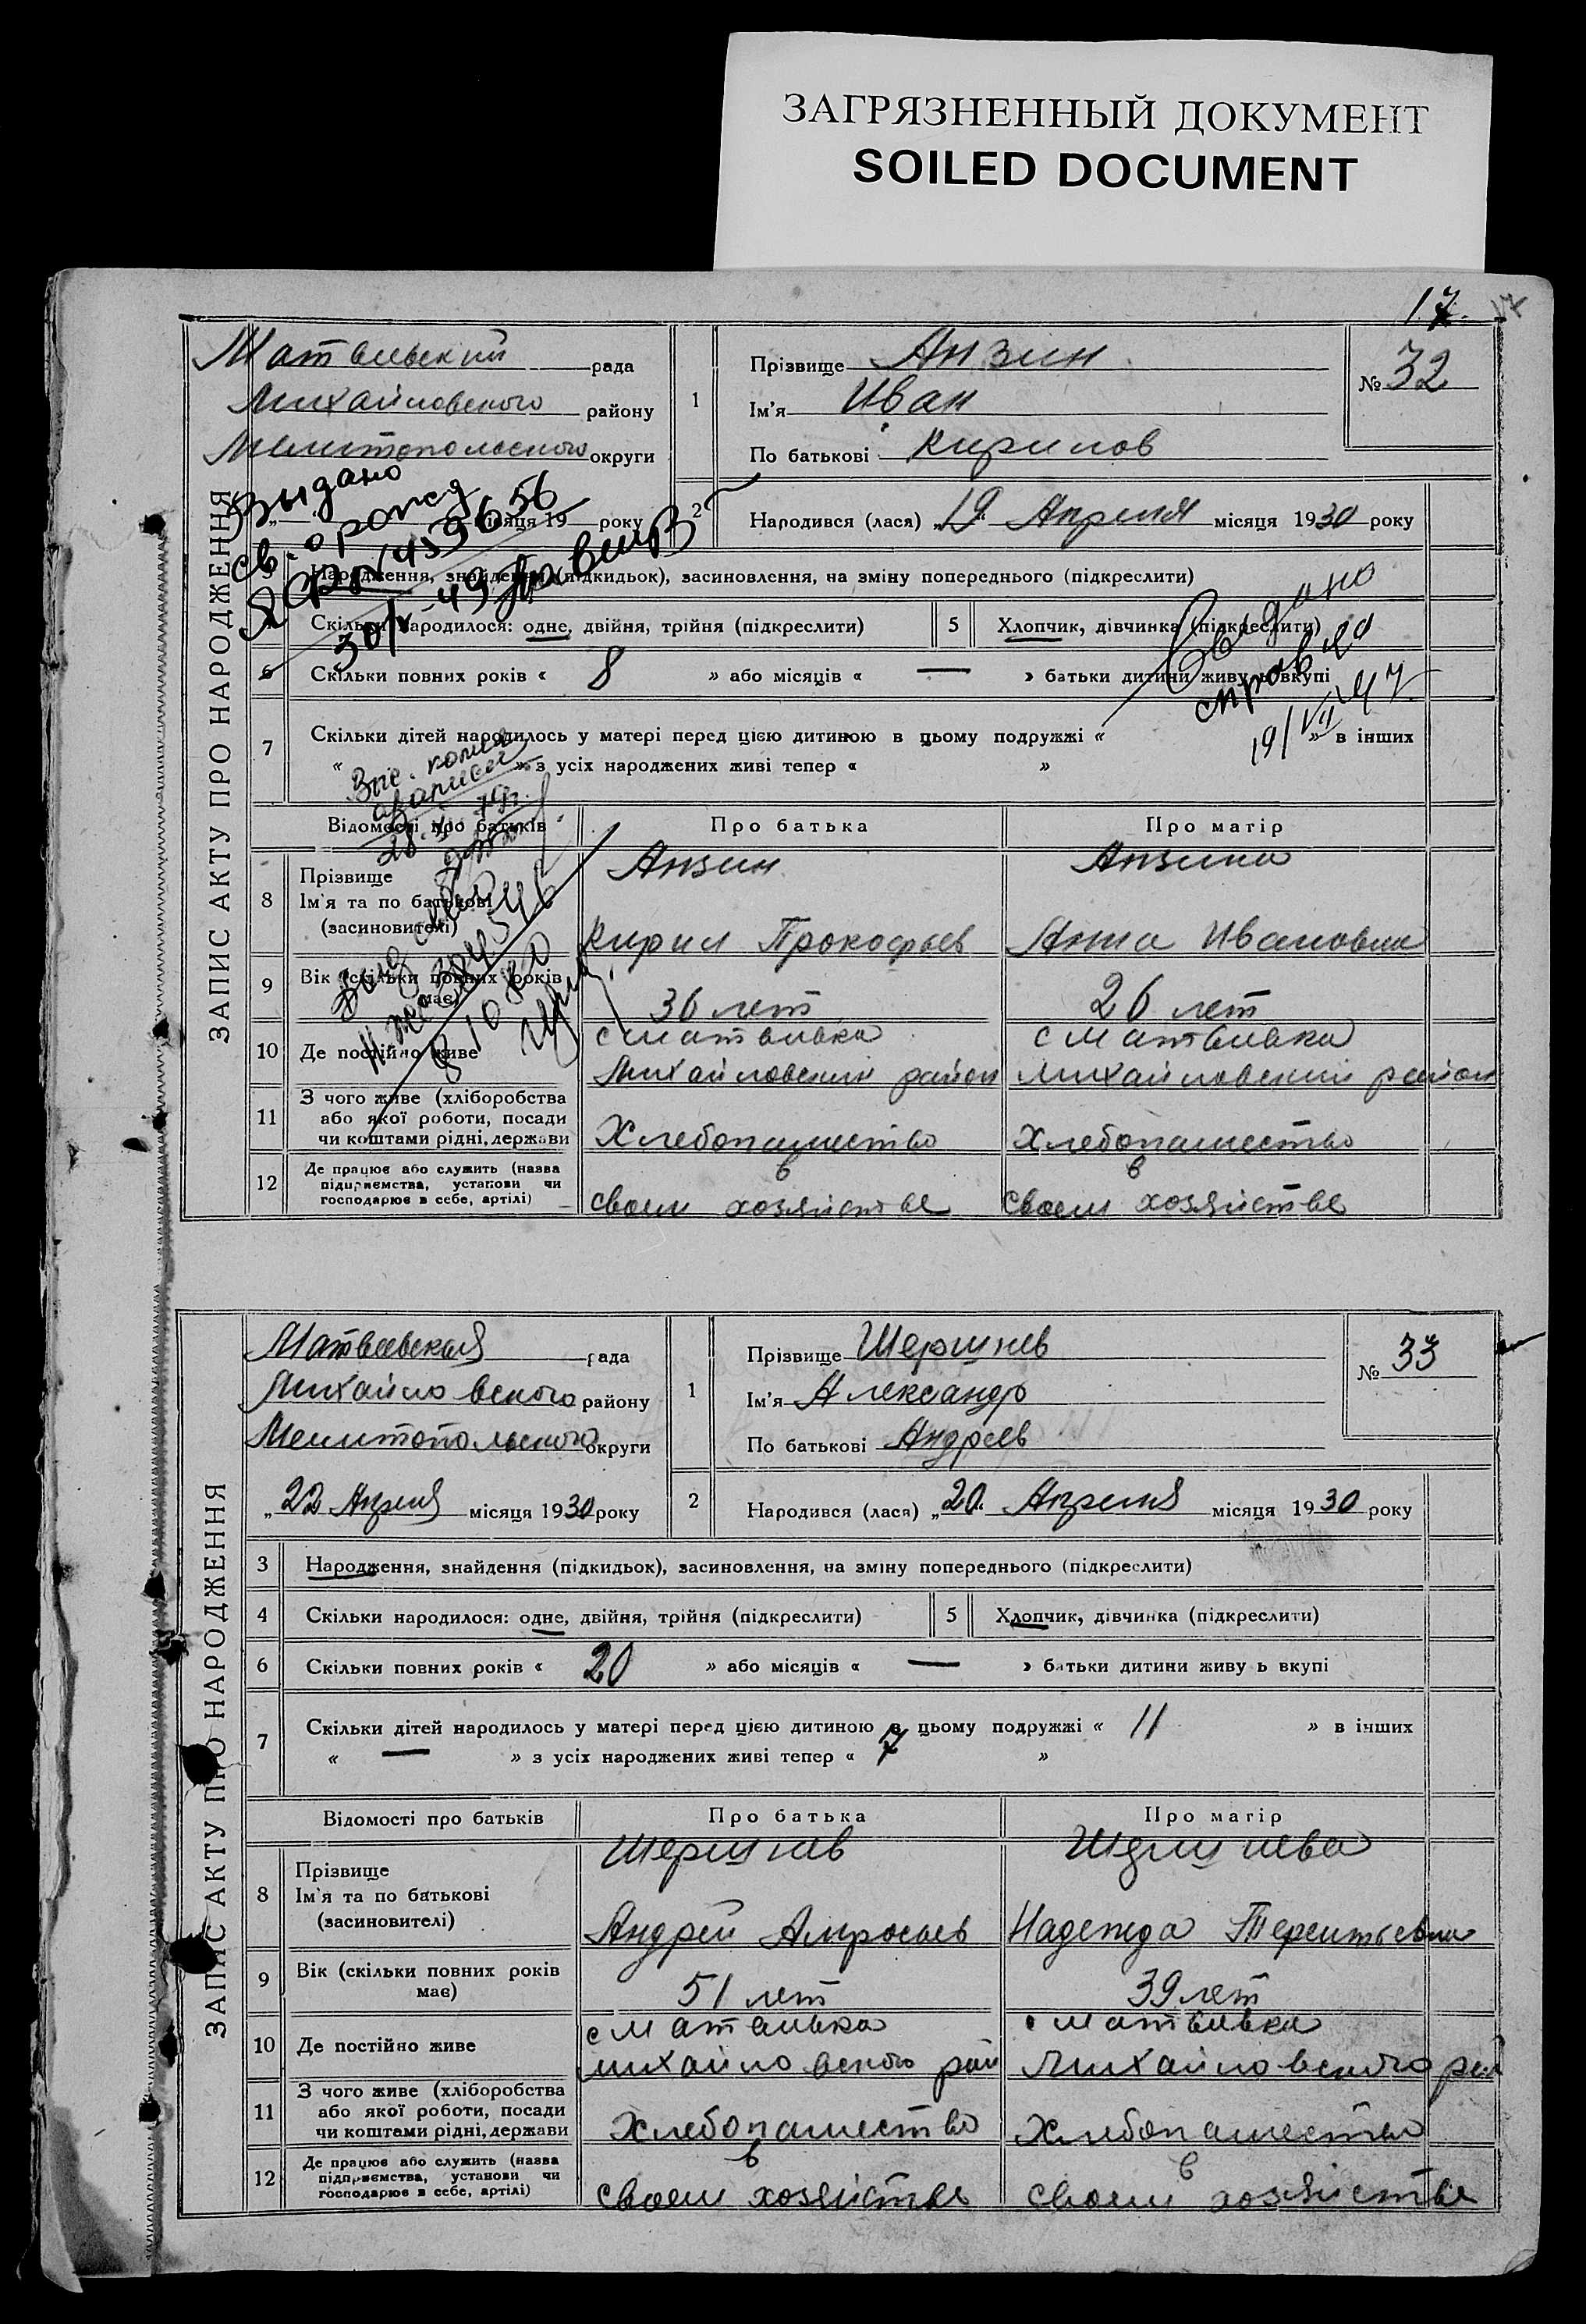 ЗАГРЯЗНЕННЫЙ ДОКУМЕНТ
SOILED DOCUMENT
17.
ЗАПИС АКТУ ПРО НАРОДЖЕННЯ
Матвиевский рада
Михайловского району
Мелитопольского округи
місяця 19 року
Выдано
св. о рожд
№ 439656
30/V-49
1 Прізвище Анзин
Ім'я Иван
По батькові Кирилов
№ 32
2 Народився (лася) „19“ Апреля місяця 1930 року
Народження, знайдення (підкидьок), засиновлення, на зміну попереднього (підкреслити)
Скільки народилося: одне, двійня, трійня (підкреслити) 5 Хлопчик, дівчинка (підкреслити)
6 Скільки повних років « 8 » або місяців « — » батьки дитини живуь вкупі
справка
19/VII 47
7 Скільки дітей народилось у матері перед цією дитиною в цьому подружжі « » в інших
« » з усіх народжених живі тепер « »
Відомості про батьків Про батька Про матір
8 Прізвище
Ім'я та по батькові
(засиновителі)
Анзин
Кирил Прокофьев
Анзина
Анна Ивановна
9 Вік (скільки повних років має)
36 лет 26 лет
10 Де постійно живе
с Матвивка
Михайловский район
с Матвивка
Михайловский район
11 З чого живе (хліборобства
або якої роботи, посади
чи коштами рідні, держави
Хлебопашество Хлебопашество
12 Де працює або служить (назва
підприємства, установи чи
господарює в себе, артілі)
в
своем хозяйстве
в
своем хозяйстве
ЗАПИС АКТУ ПРО НАРОДЖЕННЯ
Матвеевская рада
Михайловского району
Мелитопольского округи
„22 Апреля місяця 1930 року
1 Прізвище Шершнев
Ім'я Александр
По батькові Андреев
№ 33
2 Народився (лася) „20. Апреля місяця 1930 року
3 Народження, знайдення (підкидьок), засиновлення, на зміну попереднього (підкреслити)
4 Скільки народилося: одне, двійня, трійня (підкреслити) 5 Хлопчик, дівчинка (підкреслити)
6 Скільки повних років « 20 » або місяців « — » батьки дитини живу ь вкупі
7 Скільки дітей народилось у матері перед цією дитиною в цьому подружжі « 11 » в інших
« — » з усіх народжених живі тепер « 7 »
Відомості про батьків Про батька Про матір
8 Прізвище
Ім'я та по батькові
(засиновителі)
Шершнев
Андрей Амросьев
Шершнева
Надежда Терентьевна
9 Вік (скільки повних років
має)
51 лет 39 лет
10 Де постійно живе
с Матвивка
Михайловского рай
с Матвивка
Михайловского рай
11 З чого живе (хліборобства
або якої роботи, посади
чи коштами рідні, держави
Хлебопашество Хлебопашество
12 Де працює або служить (назва
підприємства, установи чи
господарює в себе, артілі)
в
своем хозяйстве
в
своем хозяйстве